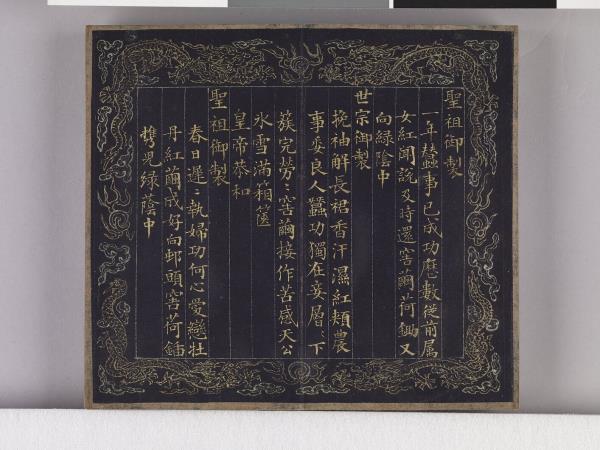 聖祖御製
一年蠶事已成功歷數從前属
女紅聞說及時還窖繭荷鋤又
向綠陰中
世宗御製
挽袖觧長裙香汗濕紅頰農
事委良人蠶功獨在妾層〻下
簇完勞〻窖繭接作苦感天公
氷雪滿箱篋
皇帝恭和
聖祖御製
春日遲〻執婦功何心愛戀牡
丹紅繭成好向邨頭窖荷鍤
携兒綠蔭中